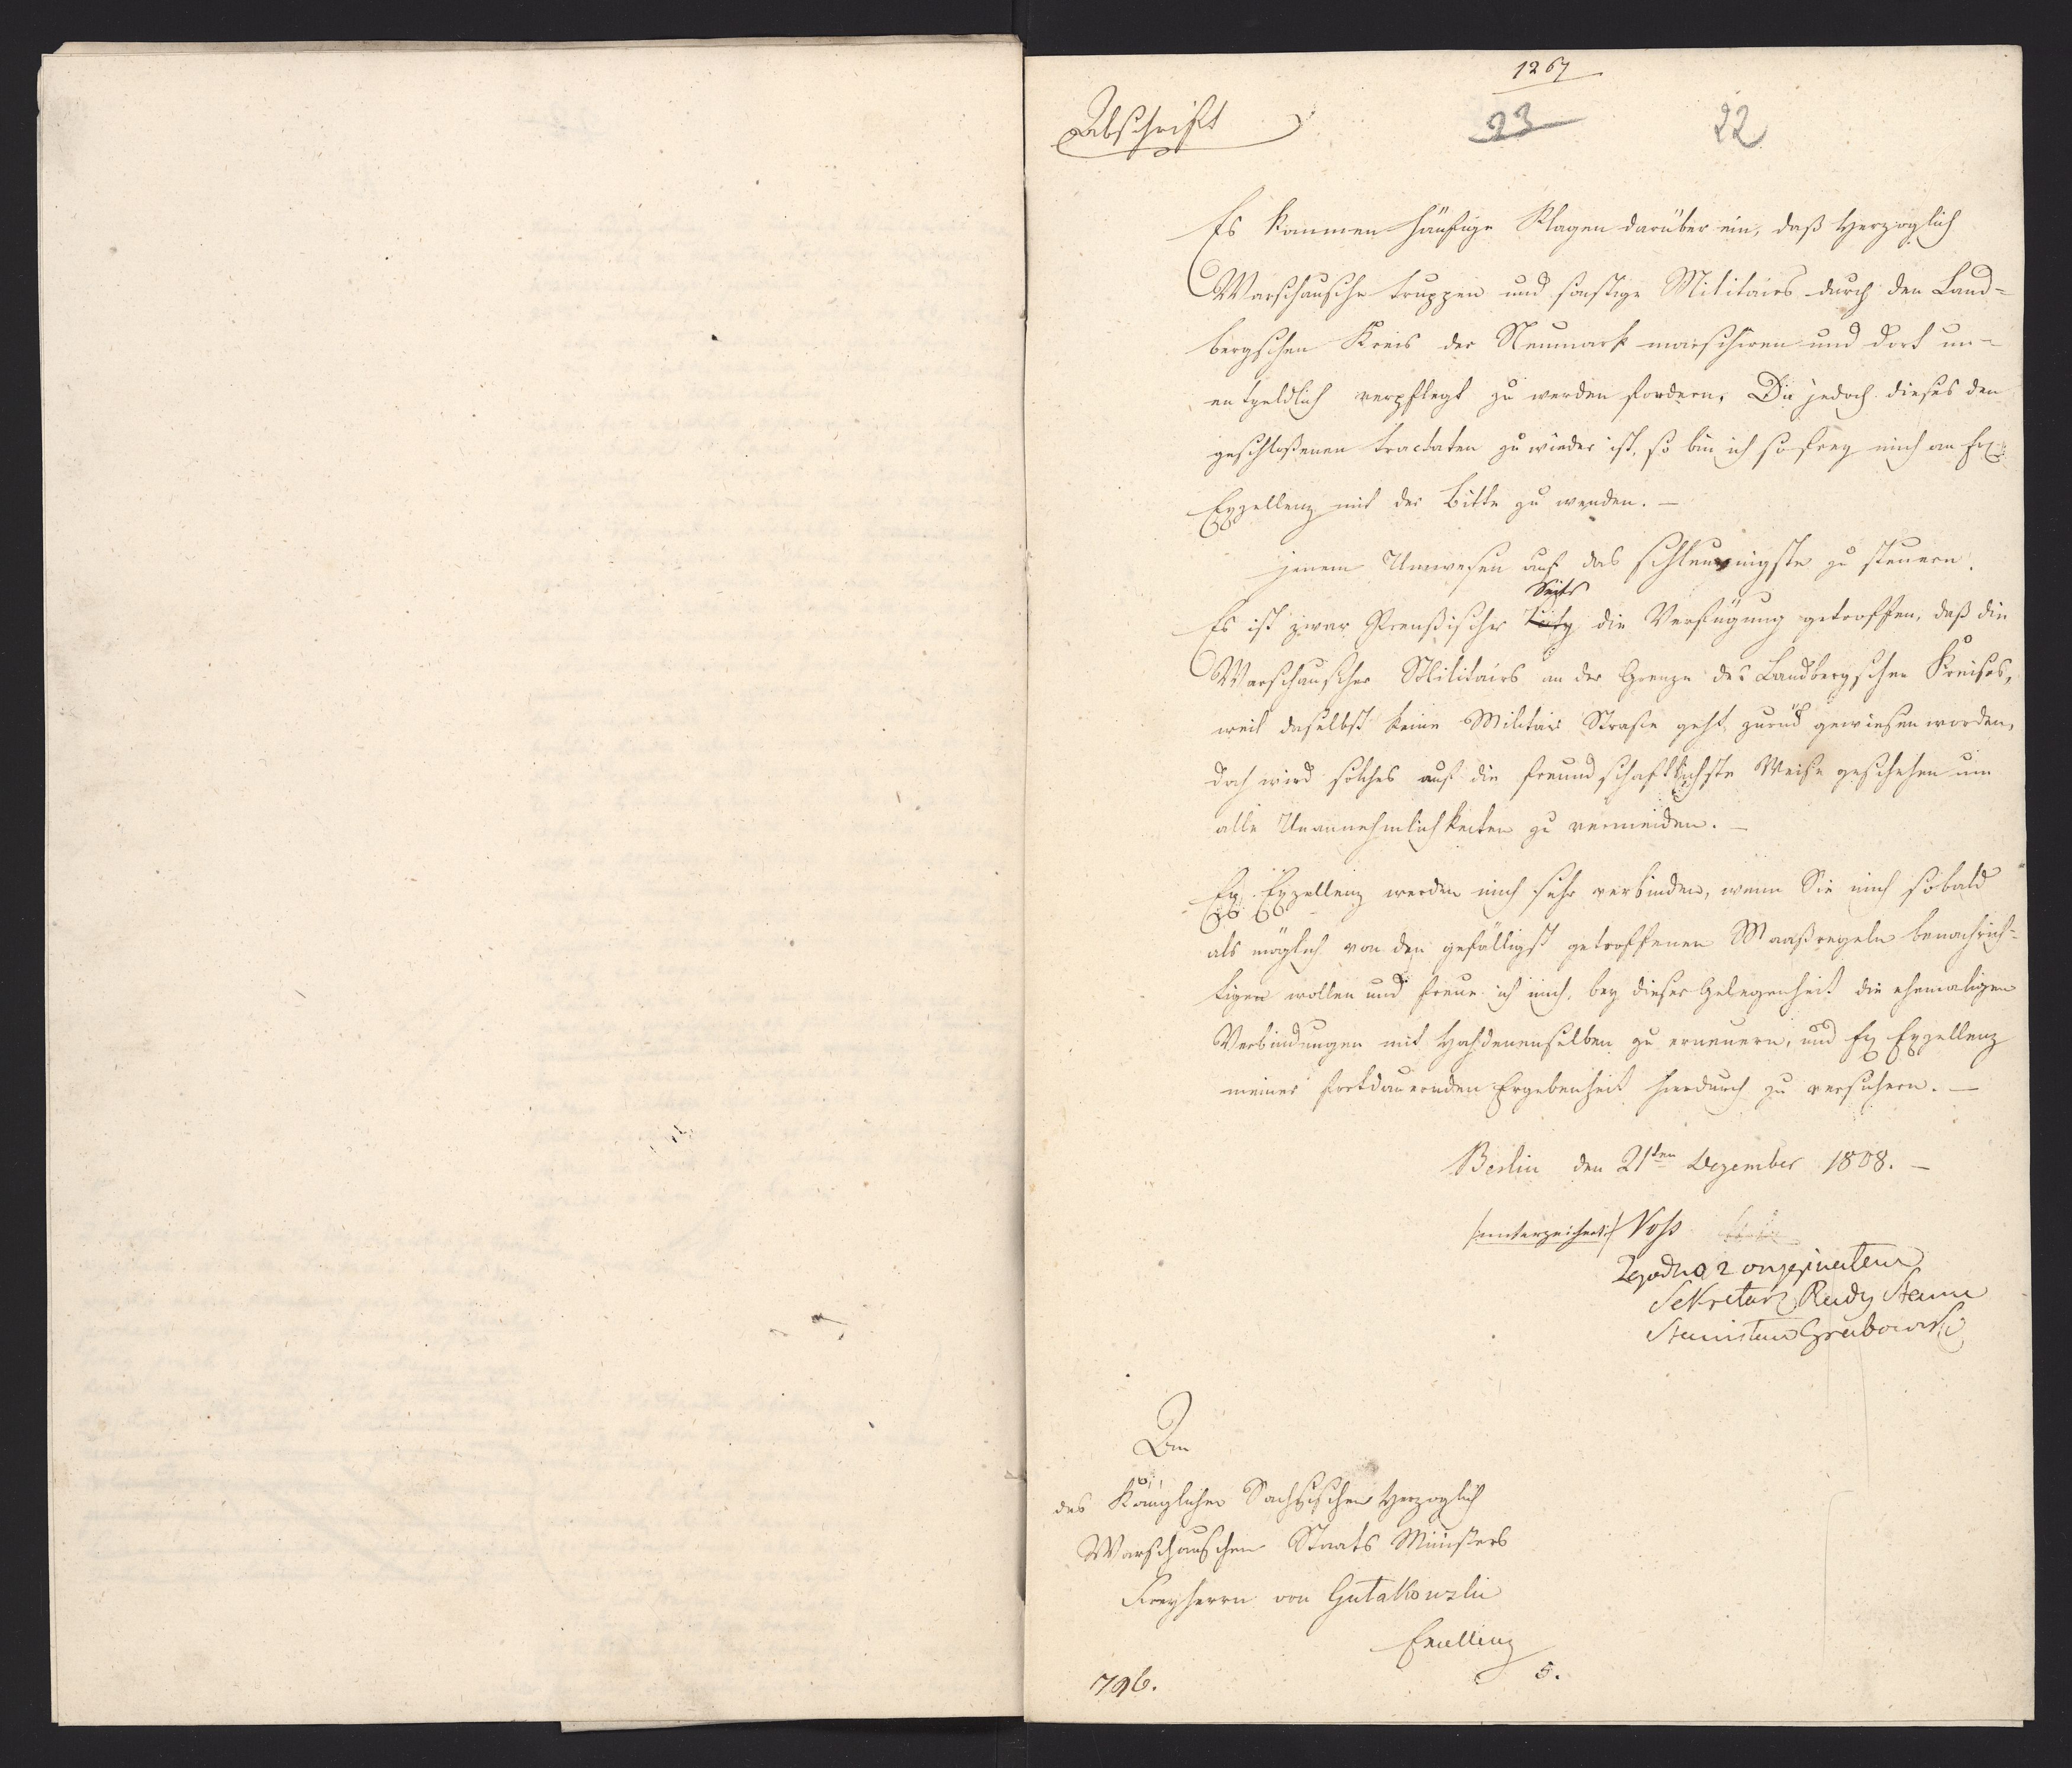 1267
Abschrift
23 22
Es kommen häufige Klagen darüber ein, daß Herzoglich
Warschausche Truppen und sonstige Militairs durch den Land-
bergschen Kreis der Neumark marschiren und dort un-
entgeldlich verpflegt zu werden fordern. Da jedoch dieses den
geschloßenen Tractaten zuwieder ist, so bin ich so frey mich an Ew
Exzellenz mit der Bitte zu wenden. —
jenem Unwesen auf das schleunigste zu steuern.
Seits
Es ist zwar Preußischer die Verfügung getroffen, daß die
Warschauscher Militairs an der Grenze des Landbergschen Kreises,
weil daselbst keine Militair Straße geht, zurück gewiesen worden,
doch wird solches auf die freundschaftlichste Weise geschehen um
alle Unannehmlichkeiten zu vermeiden. —
Ew. Exzellenz werden mich sehr verbinden, wenn Sie mich sobald
als möglich von den gefälligst getroffenen Maaßregeln benachrich-
tigen wollen und freue ich mich, bey dieser Gelegenheit die ehemaligen
Verbindungen mit Hochdenenselben zu erneuern, und Ew Exzellenz
meiner fortdauernden Ergebenheit hierdurch zu versichern. —
Berlin den 21ten Dezember 1808. —
/:unterzeichnet:/ Voß
Zgodno z oryginałem
Sekretarz Rady Stanu
Stanisław Grabowski
An
des Königlichen Sachsischen Herzoglich
Warschauschen Staats Ministers
Freyherrn von Gutakowski
Excellenz
796. 5.